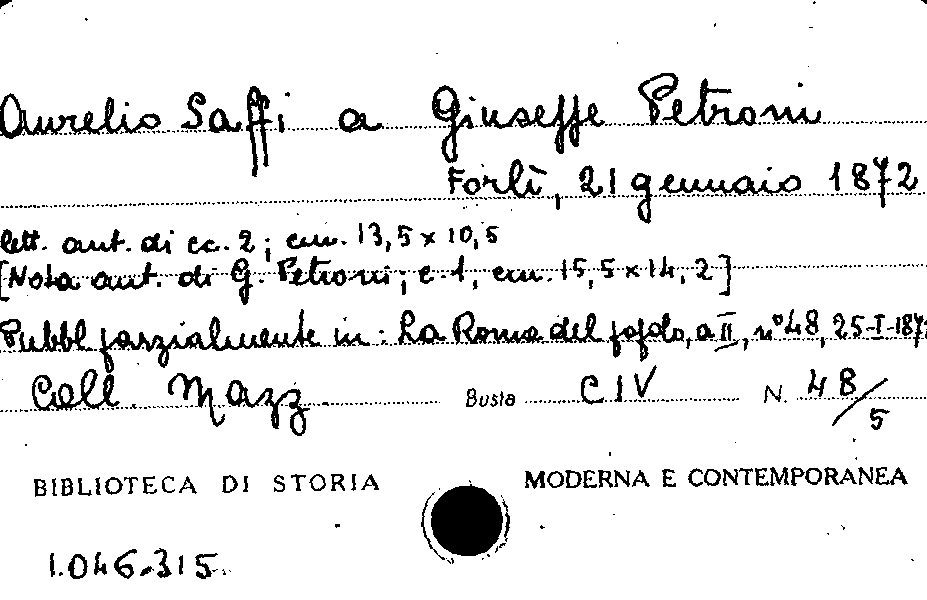 Aurelio Saffi a Giuseppe Petroni
Forlì, 21 gennaio 1872
lett. aut. di cc. 2; cm. 13,5 x 10,5
[Nota aut. di G. Petroni; c. 1, cm. 15,5 x 14,2]
Pubbl parzialmente in: La Roma del popolo, a II, n° 48, 25-I-187
Coll. Mazz Busta CIV N. 48/5
BIBLIOTECA DI STORIA MODERNA E CONTEMPORANEA
1.046.315